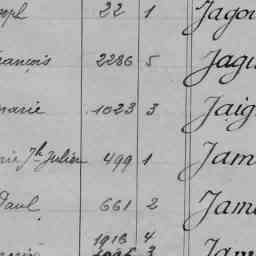 22 1 Jago
François 2286 5 Jagu
marie 1023 3 Jaig
Julien 499 1 Jam
Paul 661 2 Jam
1916 4
3 Jam